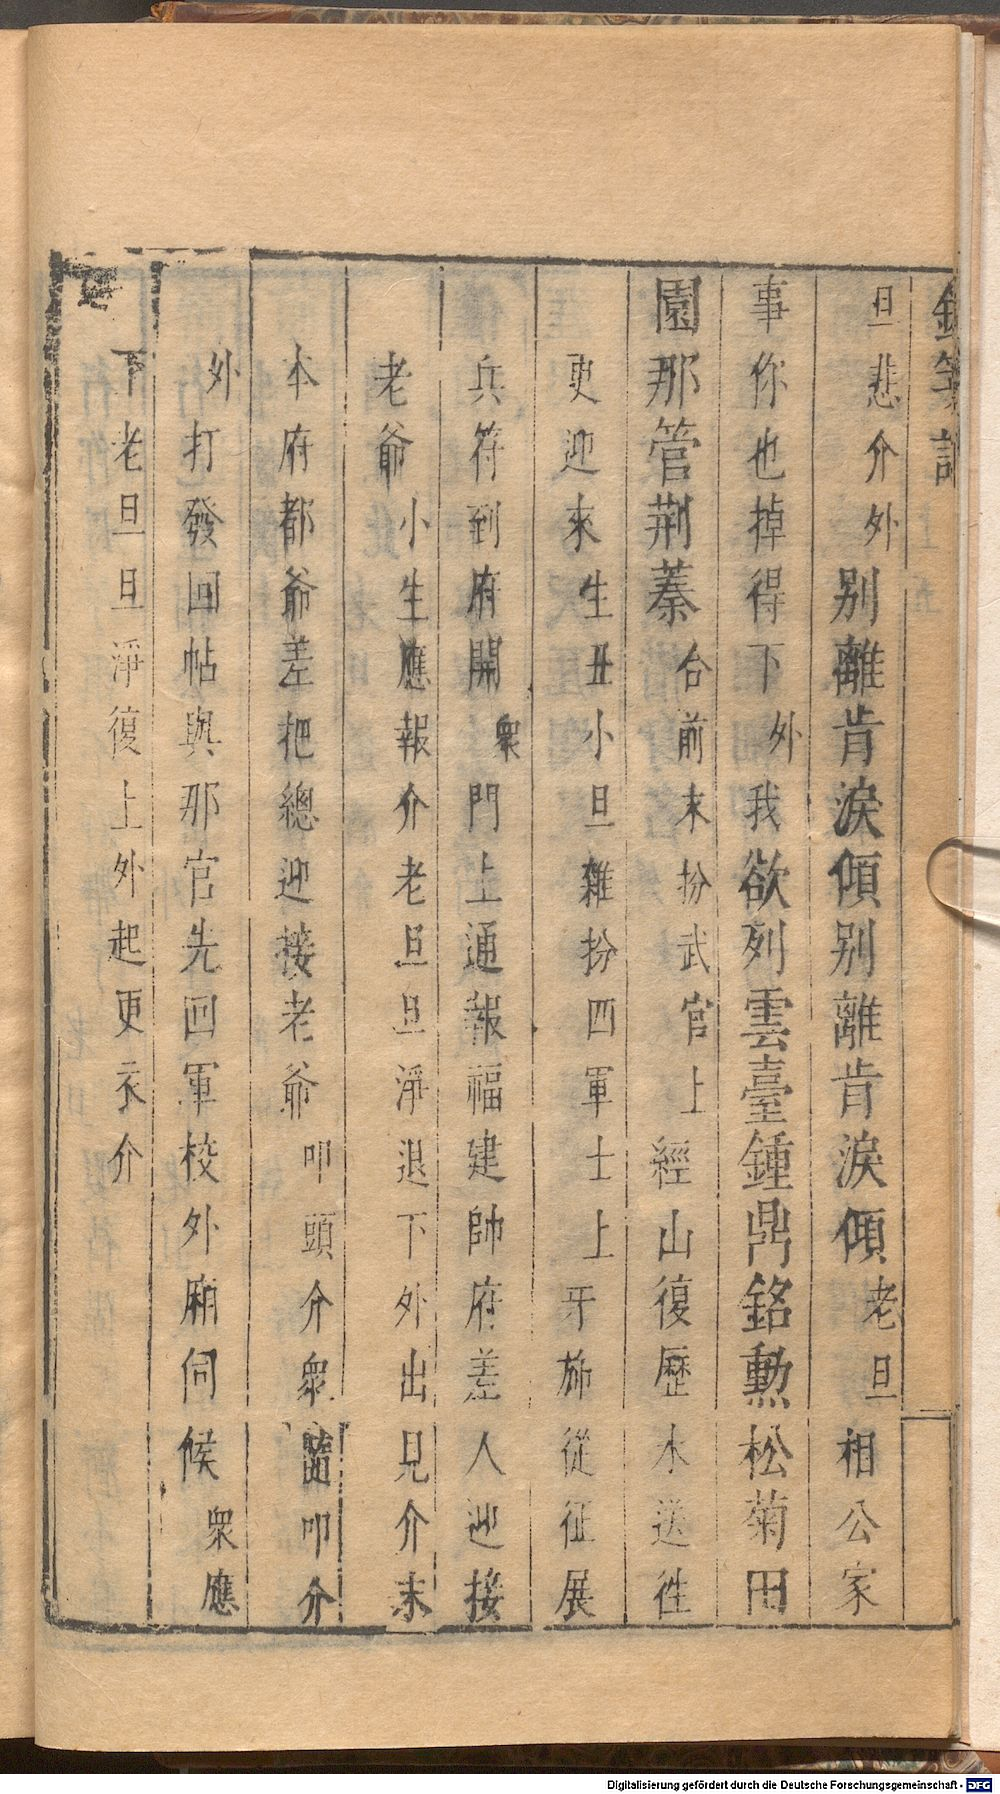 旦悲介外別離肯淚傾別離肯淚傾老旦相公家
事你也掉得下外我欲列雲臺鍾鼎銘勳松菊田
園那管荆蓁合前末扮武官上經山復歷水送徃
更迎來生丑小旦雜扮四軍士上牙旆從征展
兵符到府開衆門上通報福建帥府差人迎接
老爺小生應報介老旦旦淨退下外出見介末
本府都爺差把總迎接老爺叩頭介衆隨叩介
外打發回帖與那官先回軍校外厢伺候衆應
下老旦旦淨復上外起更衣介
Digitalisierung gefördert durch die Deutsche Forschungsgemeinschaft - DFG